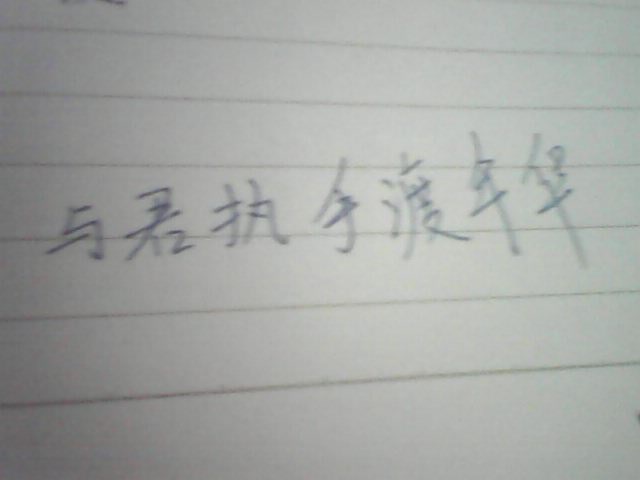 与君执手渡年华